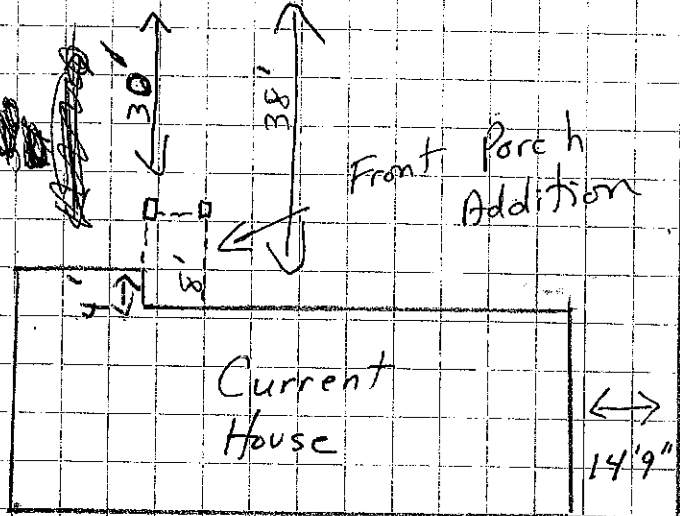 30'
38'
Front Porch
Addition
8'
4'
Current
House
14'9"